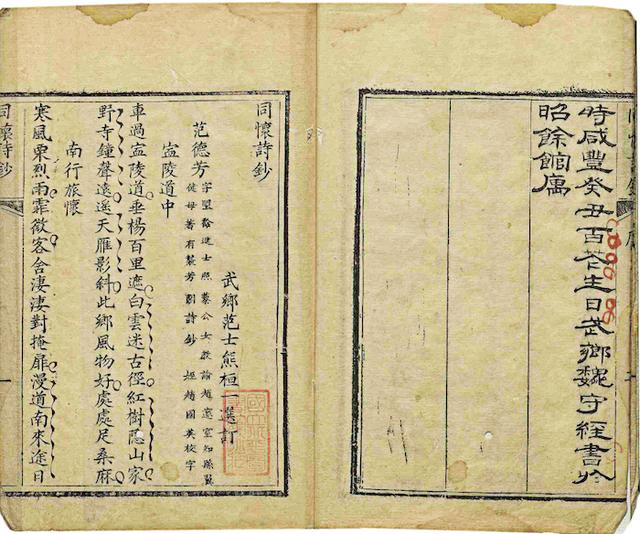 時咸豐癸丑百花生日武鄉魏守經書於
昭餘館寓
同懷詩鈔
武鄉范士熊桓一選訂
范德芳
字盟 進士熙 公女教諭趙憲室知縣
母著有 芳閣詩鈔 姪趙國英校字
寍陵道中
車過寍陵道垂楊百里遮白雲迷古徑紅樹隱山家
野寺鐘聲遠遙天雁影斜此鄉風物好處處足桑麻
南行旅懷
寒風栗烈雨霏微客舍淒淒對掩扉漫道南來途日
同懷詩鈔
一